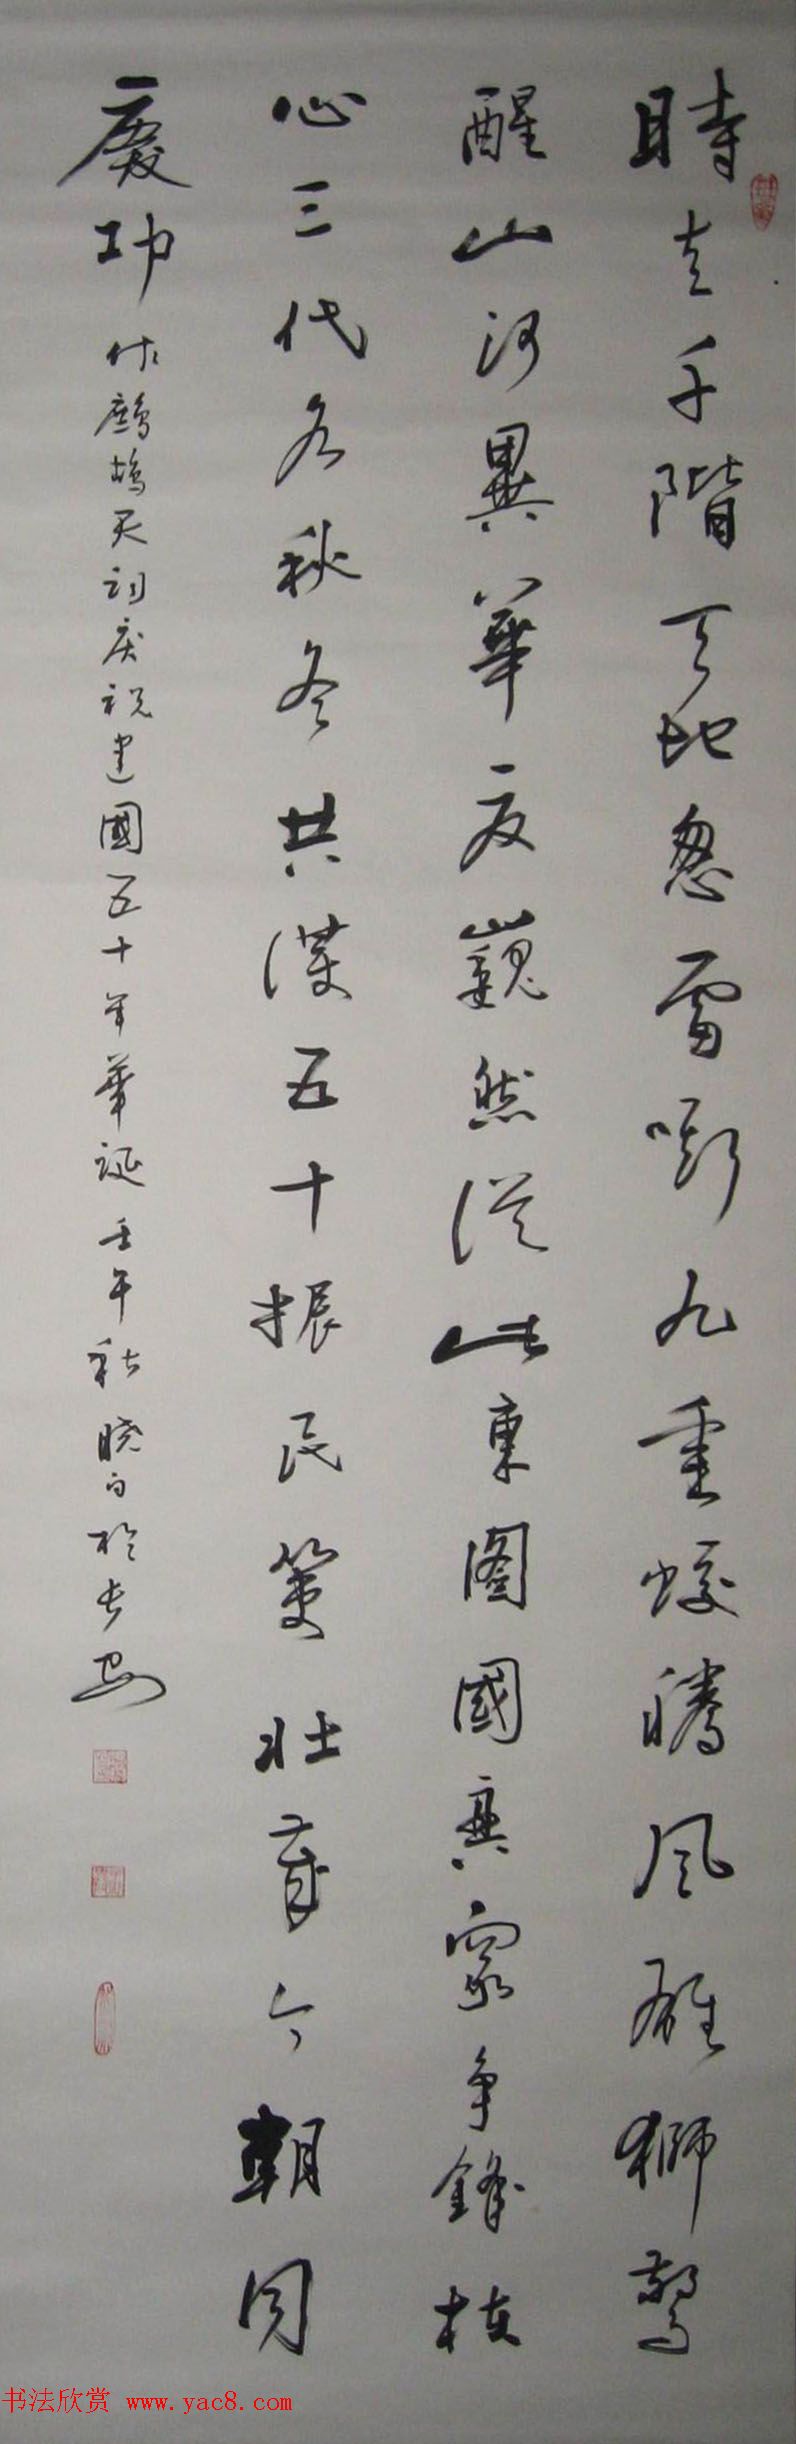 時去千階天地怱雷嘶九重蛟騰風雄獅驚
醒山河異華夏巍然從此東圖國興家爭鋒核
心三代各秋冬共謀五十振民策壯哉今朝同
慶功 作鷓鴣天詞慶祝建國五十年華誕 壬午秋曉白於長安
书法欣赏 www.yac8.com